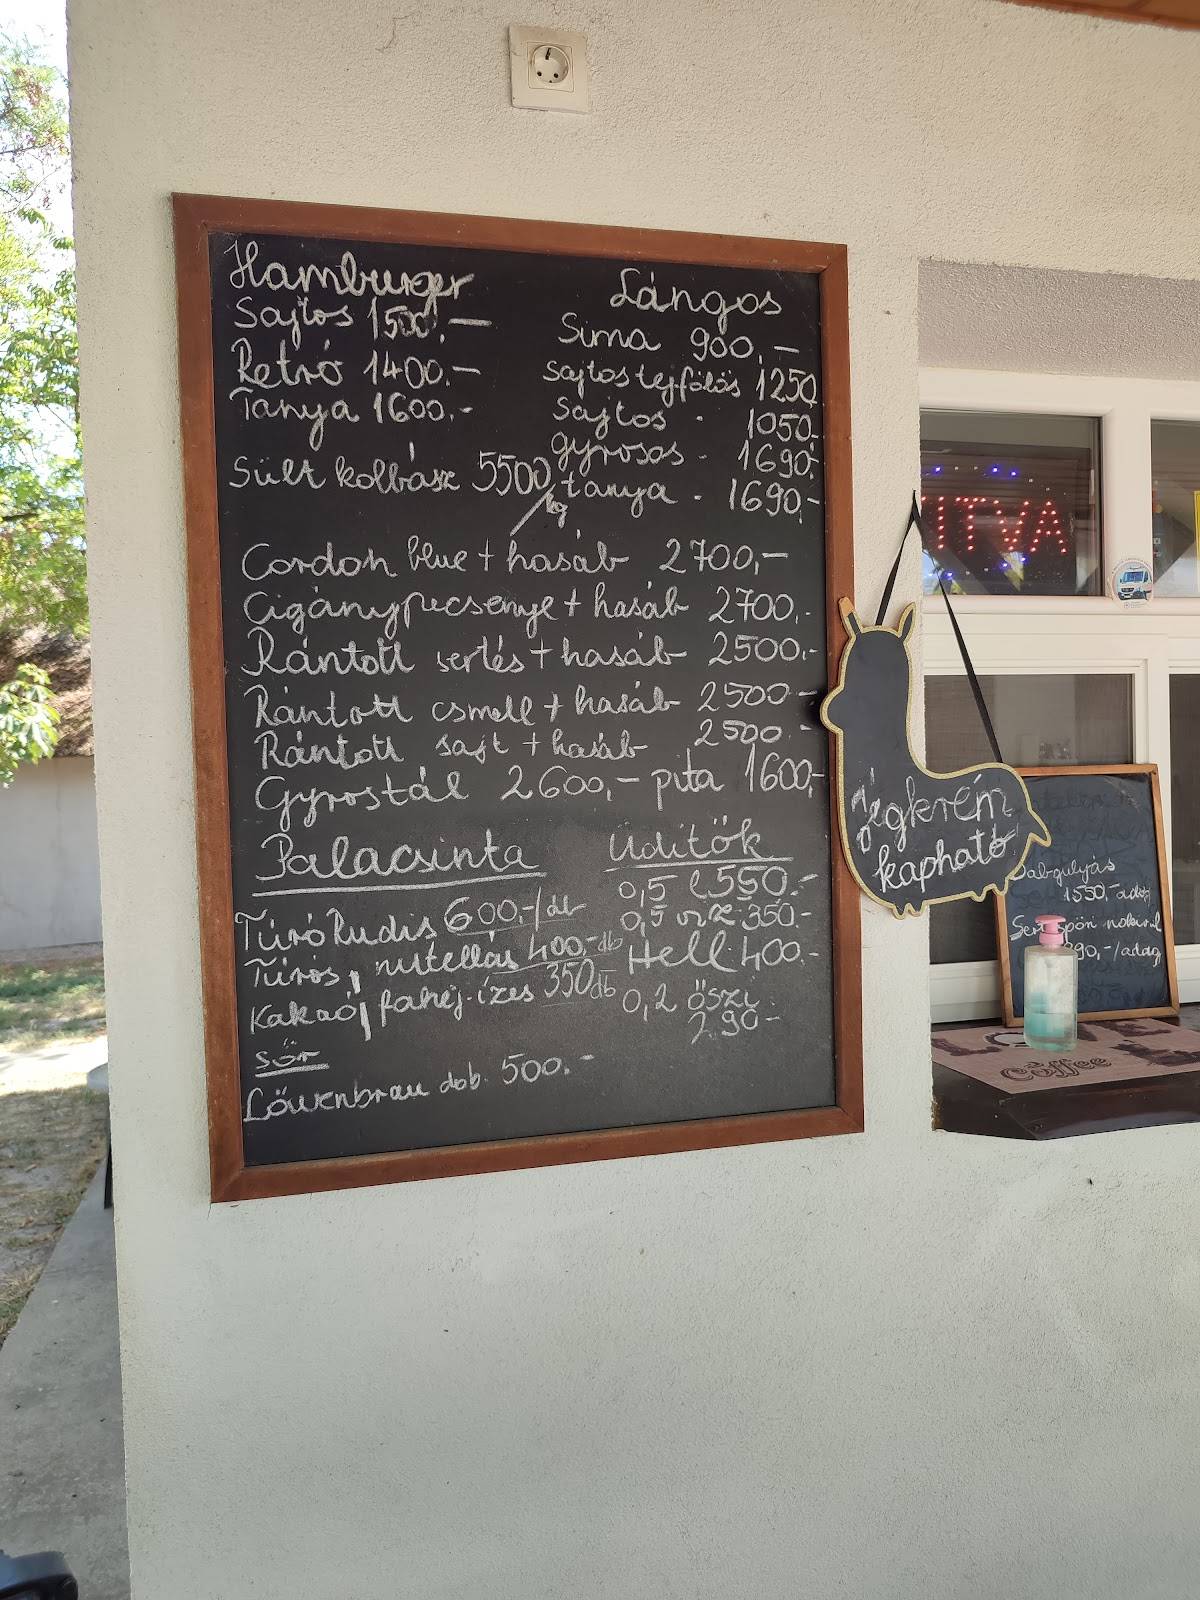 Hamburger
Sajtos 1500.-
Retró 1400.-
Tanya 1600.-
Sült kolbász 5500/kg
Lángos
Sima 900.-
Sajtos tejfölös 1250.
Sajtos - 1050.-
gyrosos - 1690.-
tanya - 1690,-
Cordon blue + hasáb 2700,-
Cigánypecsenye + hasáb 2700.-
Rántott sertés + hasáb 2500.-
Rántott csmell + hasáb 2500.-
Rántott sajt + hasáb 2500.-
Gyrostál 2600,- pita 1600,-
Palacsinta
TúróRudis 600.-/db
Túrós, nutellás 400.-db
Kakaó, fahéj-ízes 350db
sör
Löwenbrau dob. 500.-
Üdítők
0,5 l 550.-
0,5 víz 350.-
Hell 400.-
0,2 őszi
290-
NYITVA
Jégkrém
kapható
Babgulyás
1550,-adag
LOVE
Coffee